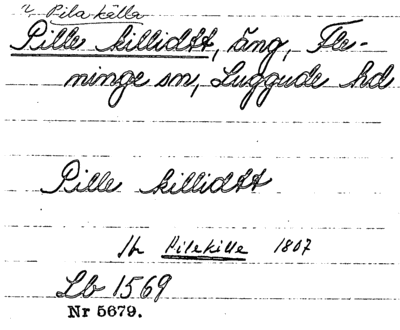 Pilakälla
Pille killidtt, äng, Fle-
ninge sn, Luggude hd
Pille killidtt
Jb Pilekille 1807
Lb 1569
Nr 5679.